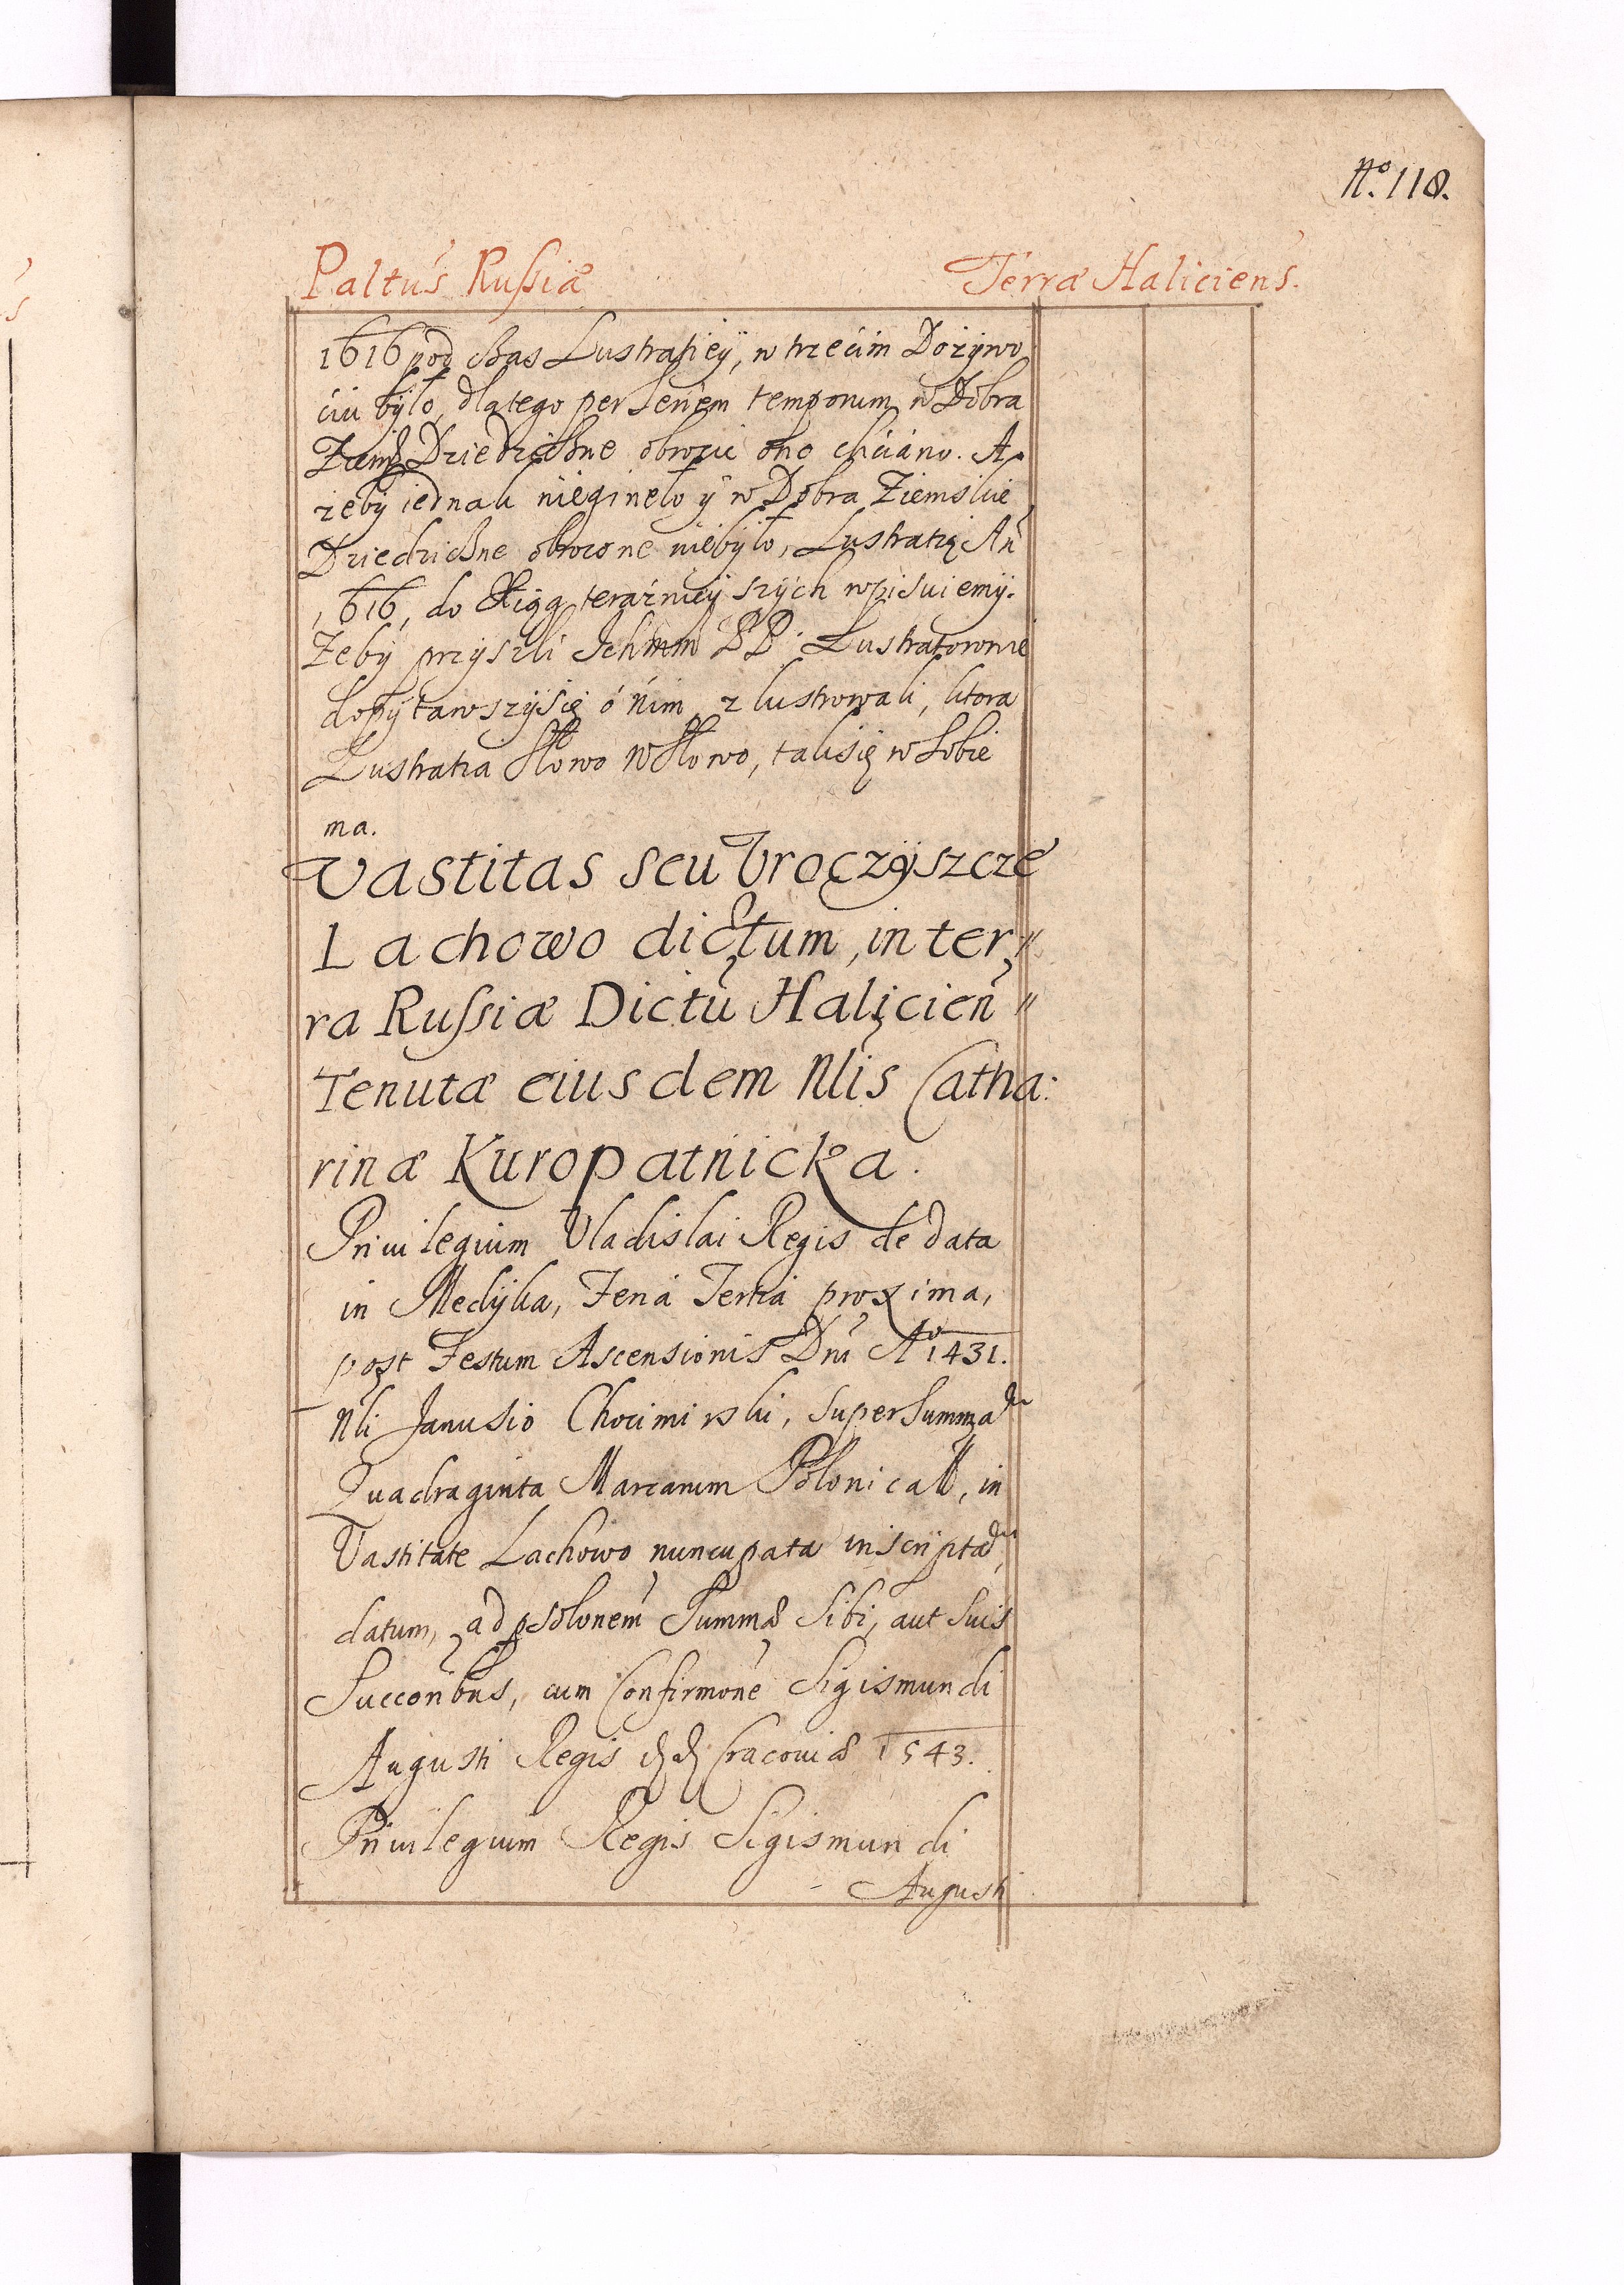 N.º 118.
Paltus Russiæ Terræ Haliciens.
1616 pod czas Lustratiey, w trzecim Dożywo
ciu było, dlatego per seriem temporum w Dobra
Ziems Dziedziczne obrocic ono chciano. A
zeby iednak nieginęło y w Dobra Ziemskie
Dziedziczne obrocone niebyło, Lustratią Añ
1616, do Xiąg teraznieyszych wpisuiemy.
Zeby przyszli Ichmm PP. Lustratorowie
dopytawszysię o nim zlustrowali, ktora
Lustratia Słowo w Słowo, taksię w Sobie
ma.
Vastitas seu Vroczyszcze
Lachowo dictum, in ter,,
ra Russiæ Dictu Halicień,,
Tenutæ eiusdem Nlis Catha:
rinæ Kuropatnicka.
Priuilegium Vladislai Regis de data
in Medyka, Feria Tertia proxima,
post Festum Ascensionis Dni Aº 1431.
Nli Janusio Chocimirski, super Summa
Quadraginta Marcarum Polonicall, in
Vastitate Lachowo nuncupata inscripta,
datum, ad psolonem Summæ Sibi, aut Suis
Succoribus, cum Confirmone Sigismundi
Augusti Regis dd Cracouiæ 1543.
Priuilegium Regis Sigismundi
Augusti